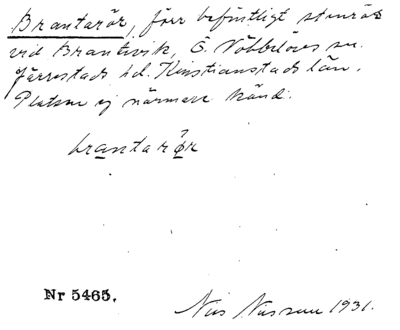 Brantarör, förr befintligt stenrös
vid Brantevik, Ö. Nöbbelövs sn.
Järrestads hd. Kristianstads län.
Platsen ej närmare känd.
brantarör
Nr 5465.
Nils Nilsson 1931.